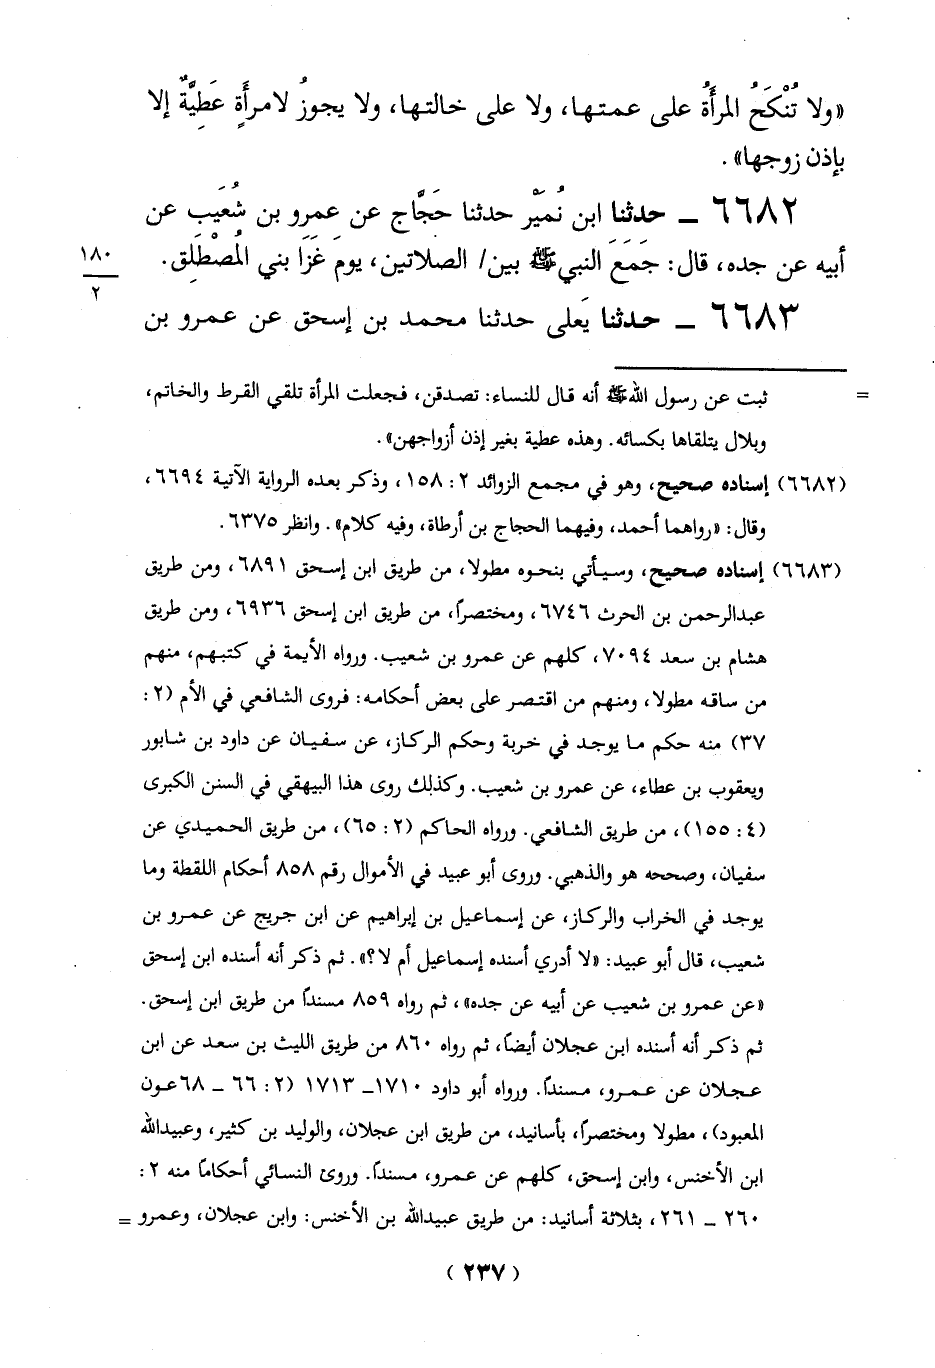 «ولا تُنْكَحُ المرأةُ على عمتها، ولا على خالتها، ولا يجوزُ لامرأةٍ عَطِيَّةٌ إلا
بإذن زوجها».
٦٦٨٢ ـ حدثنا ابن نُمَيْر حدثنا حَجَّاج عن عمرو بن شُعَيب عن
أبيه عن جده، قال: جَمَعَ النبي ﷺ بين/ الصلاتين، يومَ غَزَا بني المُصْطَلِق.
١٨٠
٢
٦٦٨٣ ـ حدثنا يَعلى حدثنا محمد بن إسحق عن عمرو بن
= ثبت عن رسول الله ﷺ أنه قال للنساء: تصدقن، فجعلت المرأة تلقي القرط والخاتم،
وبلال يتلقاها بكسائه. وهذه عطية بغير إذن أزواجهن».
(٦٦٨٢) إسناده صحيح، وهو في مجمع الزوائد ٢: ١٥٨، وذكر بعده الرواية الآتية ٦٦٩٤،
وقال: «رواهما أحمد، وفيهما الحجاج بن أرطاة، وفيه كلام». وانظر ٦٣٧٥.
(٦٦٨٣) إسناده صحيح، وسيأتي بنحوه مطولا، من طريق ابن إسحق ٦٨٩١، ومن طريق
عبدالرحمن بن الحرث ٦٧٤٦، ومختصراً، من طريق ابن إسحق ٦٩٣٦، ومن طريق
هشام بن سعد ٧٠٩٤، كلهم عن عمرو بن شعيب. ورواه الأيمة في كتبهم، منهم
من ساقه مطولا، ومنهم من اقتصر على بعض أحكامه: فروى الشافعي في الأم (٢:
٣٧) منه حكم ما يوجد في خربة وحكم الركاز، عن سفيان عن داود بن شابور
ويعقوب بن عطاء، عن عمرو بن شعيب. وكذلك روى هذا البيهقي في السنن الكبرى
(٤: ١٥٥)، من طريق الشافعي. ورواه الحاكم (٢: ٦٥)، من طريق الحميدي عن
سفيان، وصححه هو والذهبي. وروى أبو عبيد في الأموال رقم ٨٥٨ أحكام اللقطة وما
يوجد في الخراب والركاز، عن إسماعيل بن إبراهيم عن ابن جريج عن عمرو بن
شعيب، قال أبو عبيد: «لا أدري أسنده إسماعيل أم لا؟». ثم ذكر أنه أسنده ابن إسحق
«عن عمرو بن شعيب عن أبيه عن جده»، ثم رواه ٨٥٩ مسنداً من طريق ابن إسحق.
ثم ذكر أنه أسنده ابن عجلان أيضاً، ثم رواه ٨٦٠ من طريق الليث بن سعد عن ابن
عجلان عن عمرو، مسنداً. ورواه أبو داود ١٧١٠ـ ١٧١٣ (٢: ٦٦ ـ ٦٨عون
المعبود)، مطولا ومختصراً، بأسانيد، من طريق ابن عجلان، والوليد بن كثير، وعبيدالله
ابن الأخنس، وابن إسحق، كلهم عن عمرو، مسنداً. وروى النسائي أحكاماً منه ٢:
٢٦٠ ـ ٢٦١، بثلاثة أسانيد: من طريق عبيدالله بن الأخنس: وابن عجلان، وعمرو =
(٢٣٧)